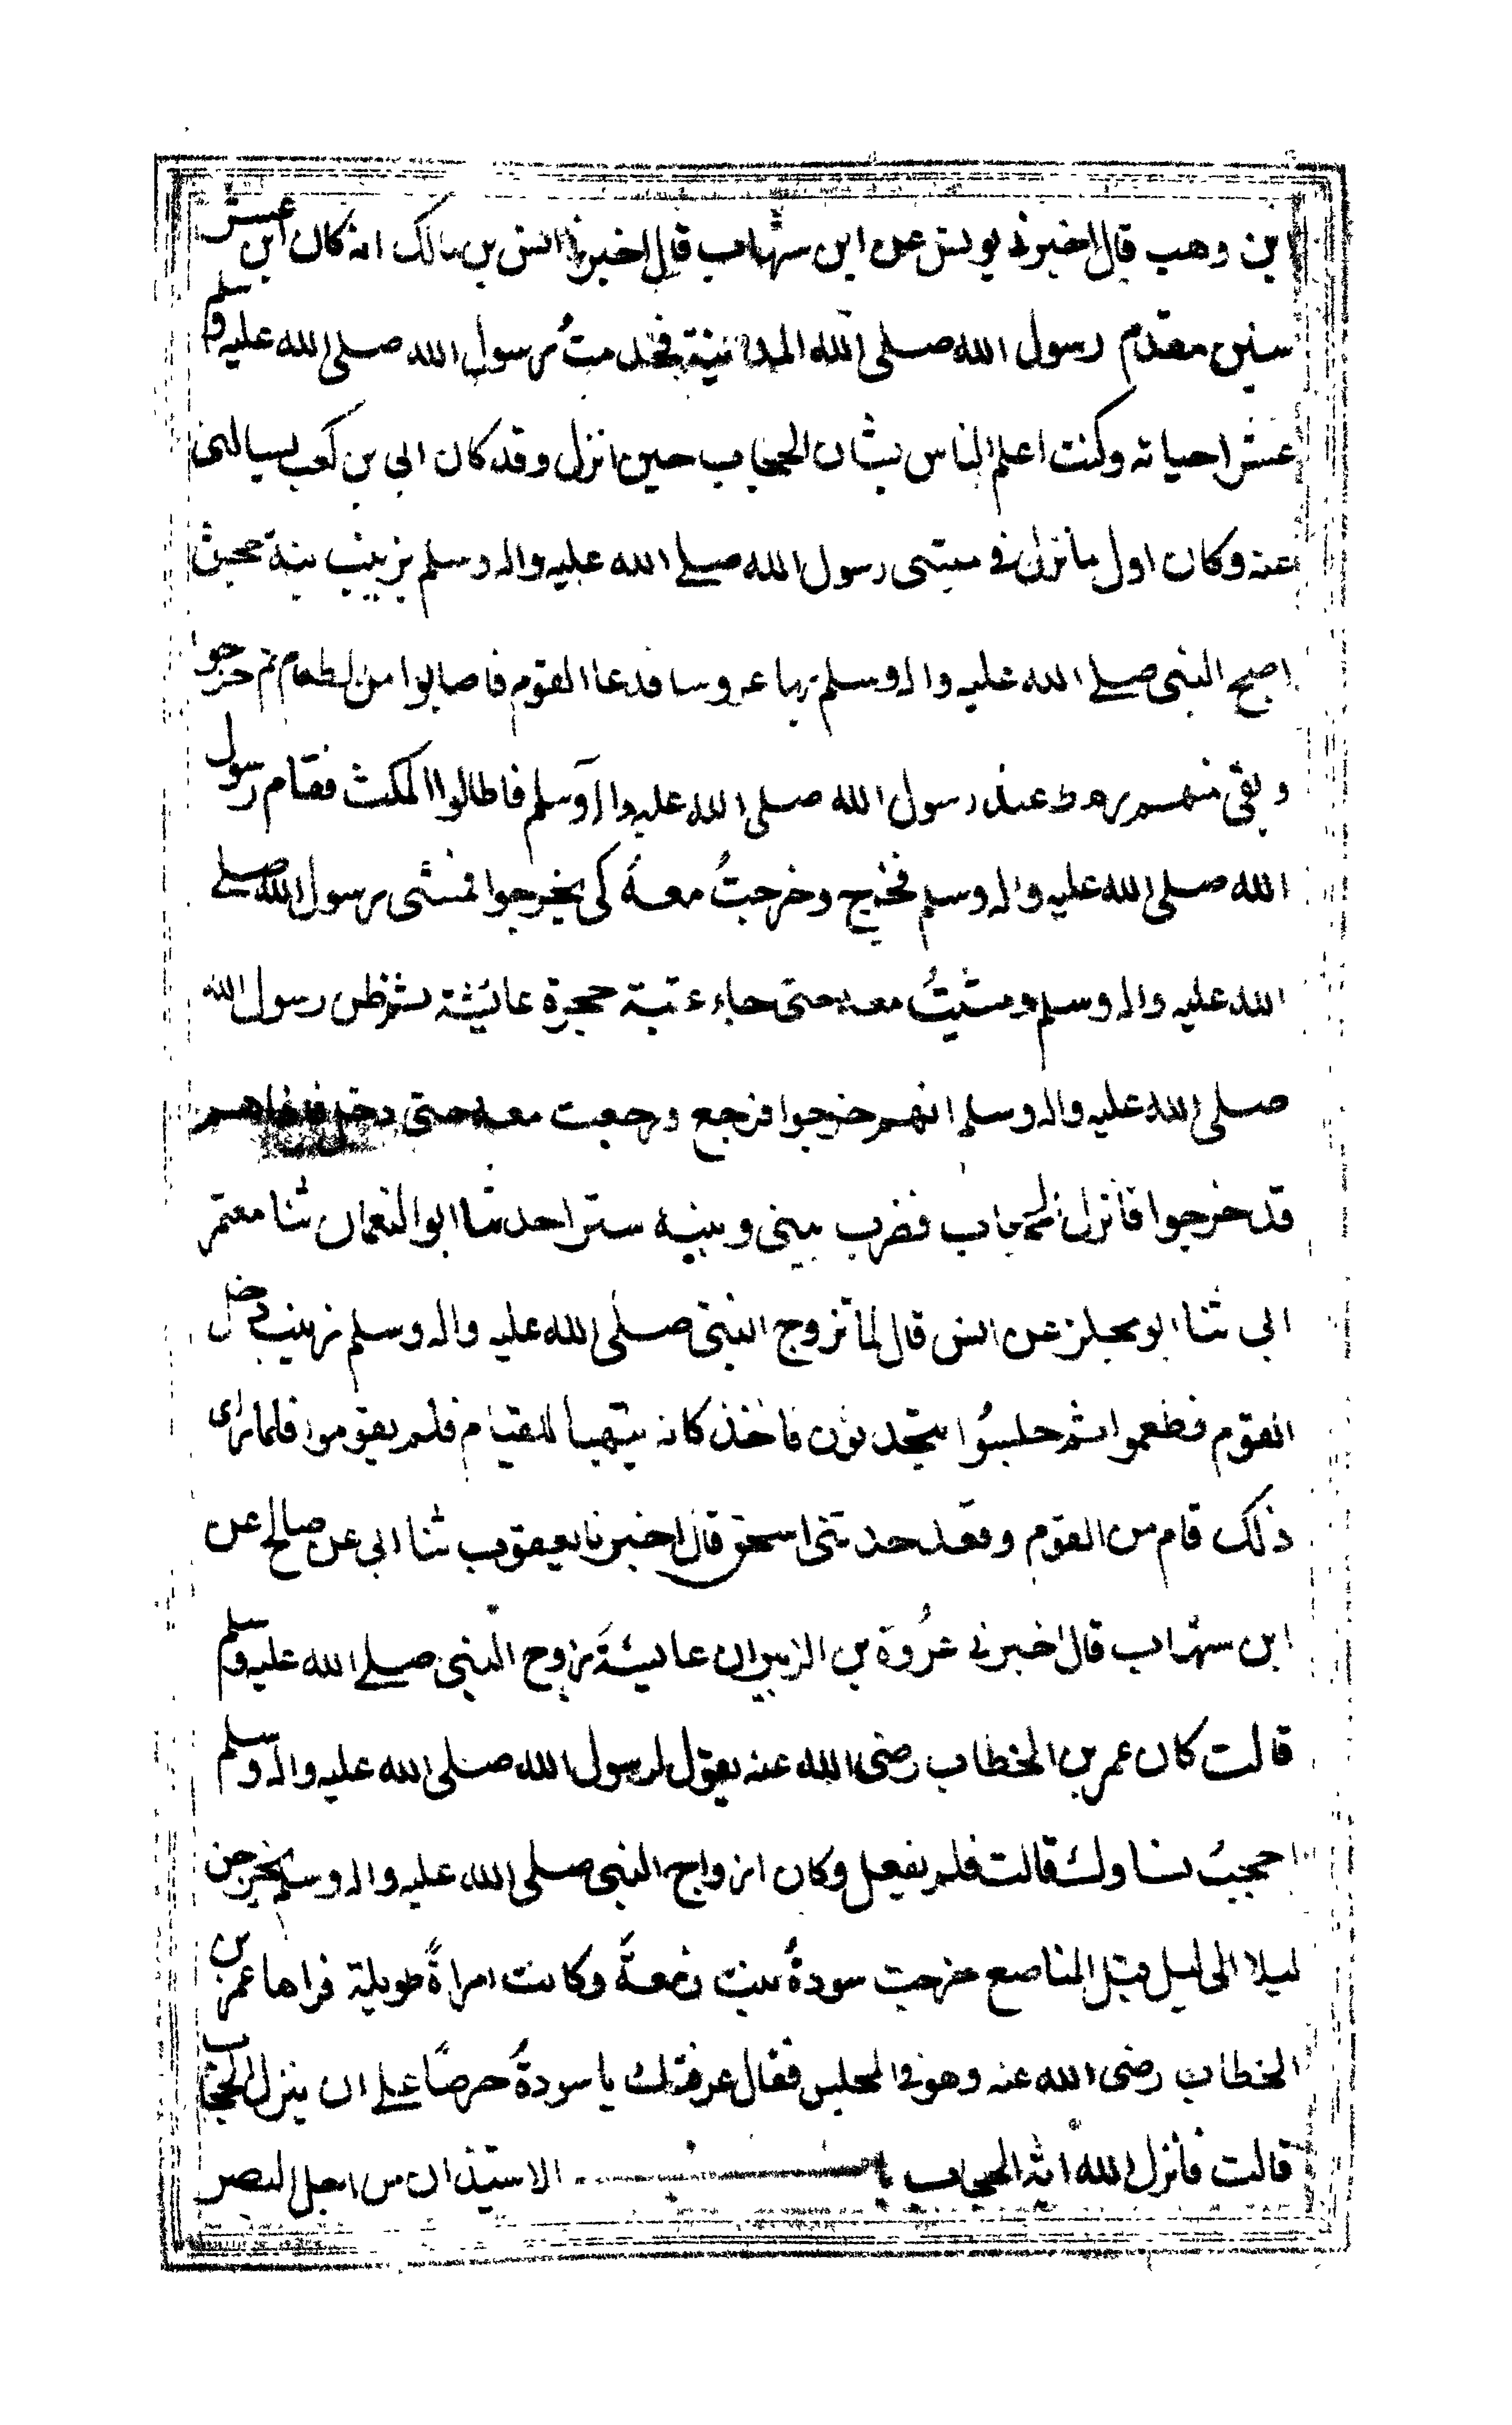 ابن وهب قال اخبرنى يونس عن ابن شهاب قال اخبرنا انس بن مالك انه كان ابن عشر
سنين مقدم رسول الله صلى الله المدينة فخدمتُ رسول الله صلى الله عليه وسلم
عشرا حياته وكنت اعلم الناس بشان الحجاب حين انزل وقد كان ابى بن كعب يسالنى
عنه وكان اول ما نزل فى مبتنى رسول الله صلى الله عليه واله وسلم بزينب بنة جحش
اصبح النبى صلى الله عليه واله وسلم بها عروسا فدعا القوم فاصابوا من الطعام ثم خرجوا
وبقى منهم رهط عند رسول الله صلى الله عليه واله وسلم فاطالوا المكث فقام رسول
الله صلى الله عليه واله وسلم فخرج وخرجتُ معهُ كى يخرجوا فمشى رسول الله صلى
الله عليه واله وسلم ومشيتُ معه حتى جاء عتبة حجرة عائيشة ثم ظن رسول الله
صلى الله عليه واله وسلم انهم خرجوا فرجع ورجعت معه حتى دخل فاذاهم
قد خرجوا فانزل الحجاب فضرب بينى وبينه سترا حدثنا ابو النعمان ثنا معتمر
ابى ثنا ابو مجلز عن انس قال لما تزوج النبى صلى الله عليه واله وسلم زينب دخل
القوم فطعموا ثم جلسُوا يتحدثون فاخذ كانه يتهيا للقيام فلم يقوموا فلما راى
ذلك قام من القوم وقعد حدثنى اسحق قال اخبرنا يعقوب ثنا ابى عن صالح عن
ابن شهاب قال اخبرنى عُروة بن الزبير ان عائيشةَ زوج النبى صلى الله عليه وسلم
قالت كان عمر بن الخطاب رضى الله عنه يقول لرسول الله صلى الله عليه واله وسلم
احجبُ نساوك قالت فلم يفعل وكان ازواج النبى صلى الله عليه واله وسلم يخرجن
ليلا الى ليل قبل المناصع خرجت سودةُ بنت زمعةَ وكانت امراةً طويلة فراها عمر بن
الخطاب رضى الله عنه وهو فى المجلس فقال عرفتك يا سودةُ حرصًا على ان ينزل الحجاب
قالت فانزل الله اية الحجاب باب الاستيذان من اجل البصر